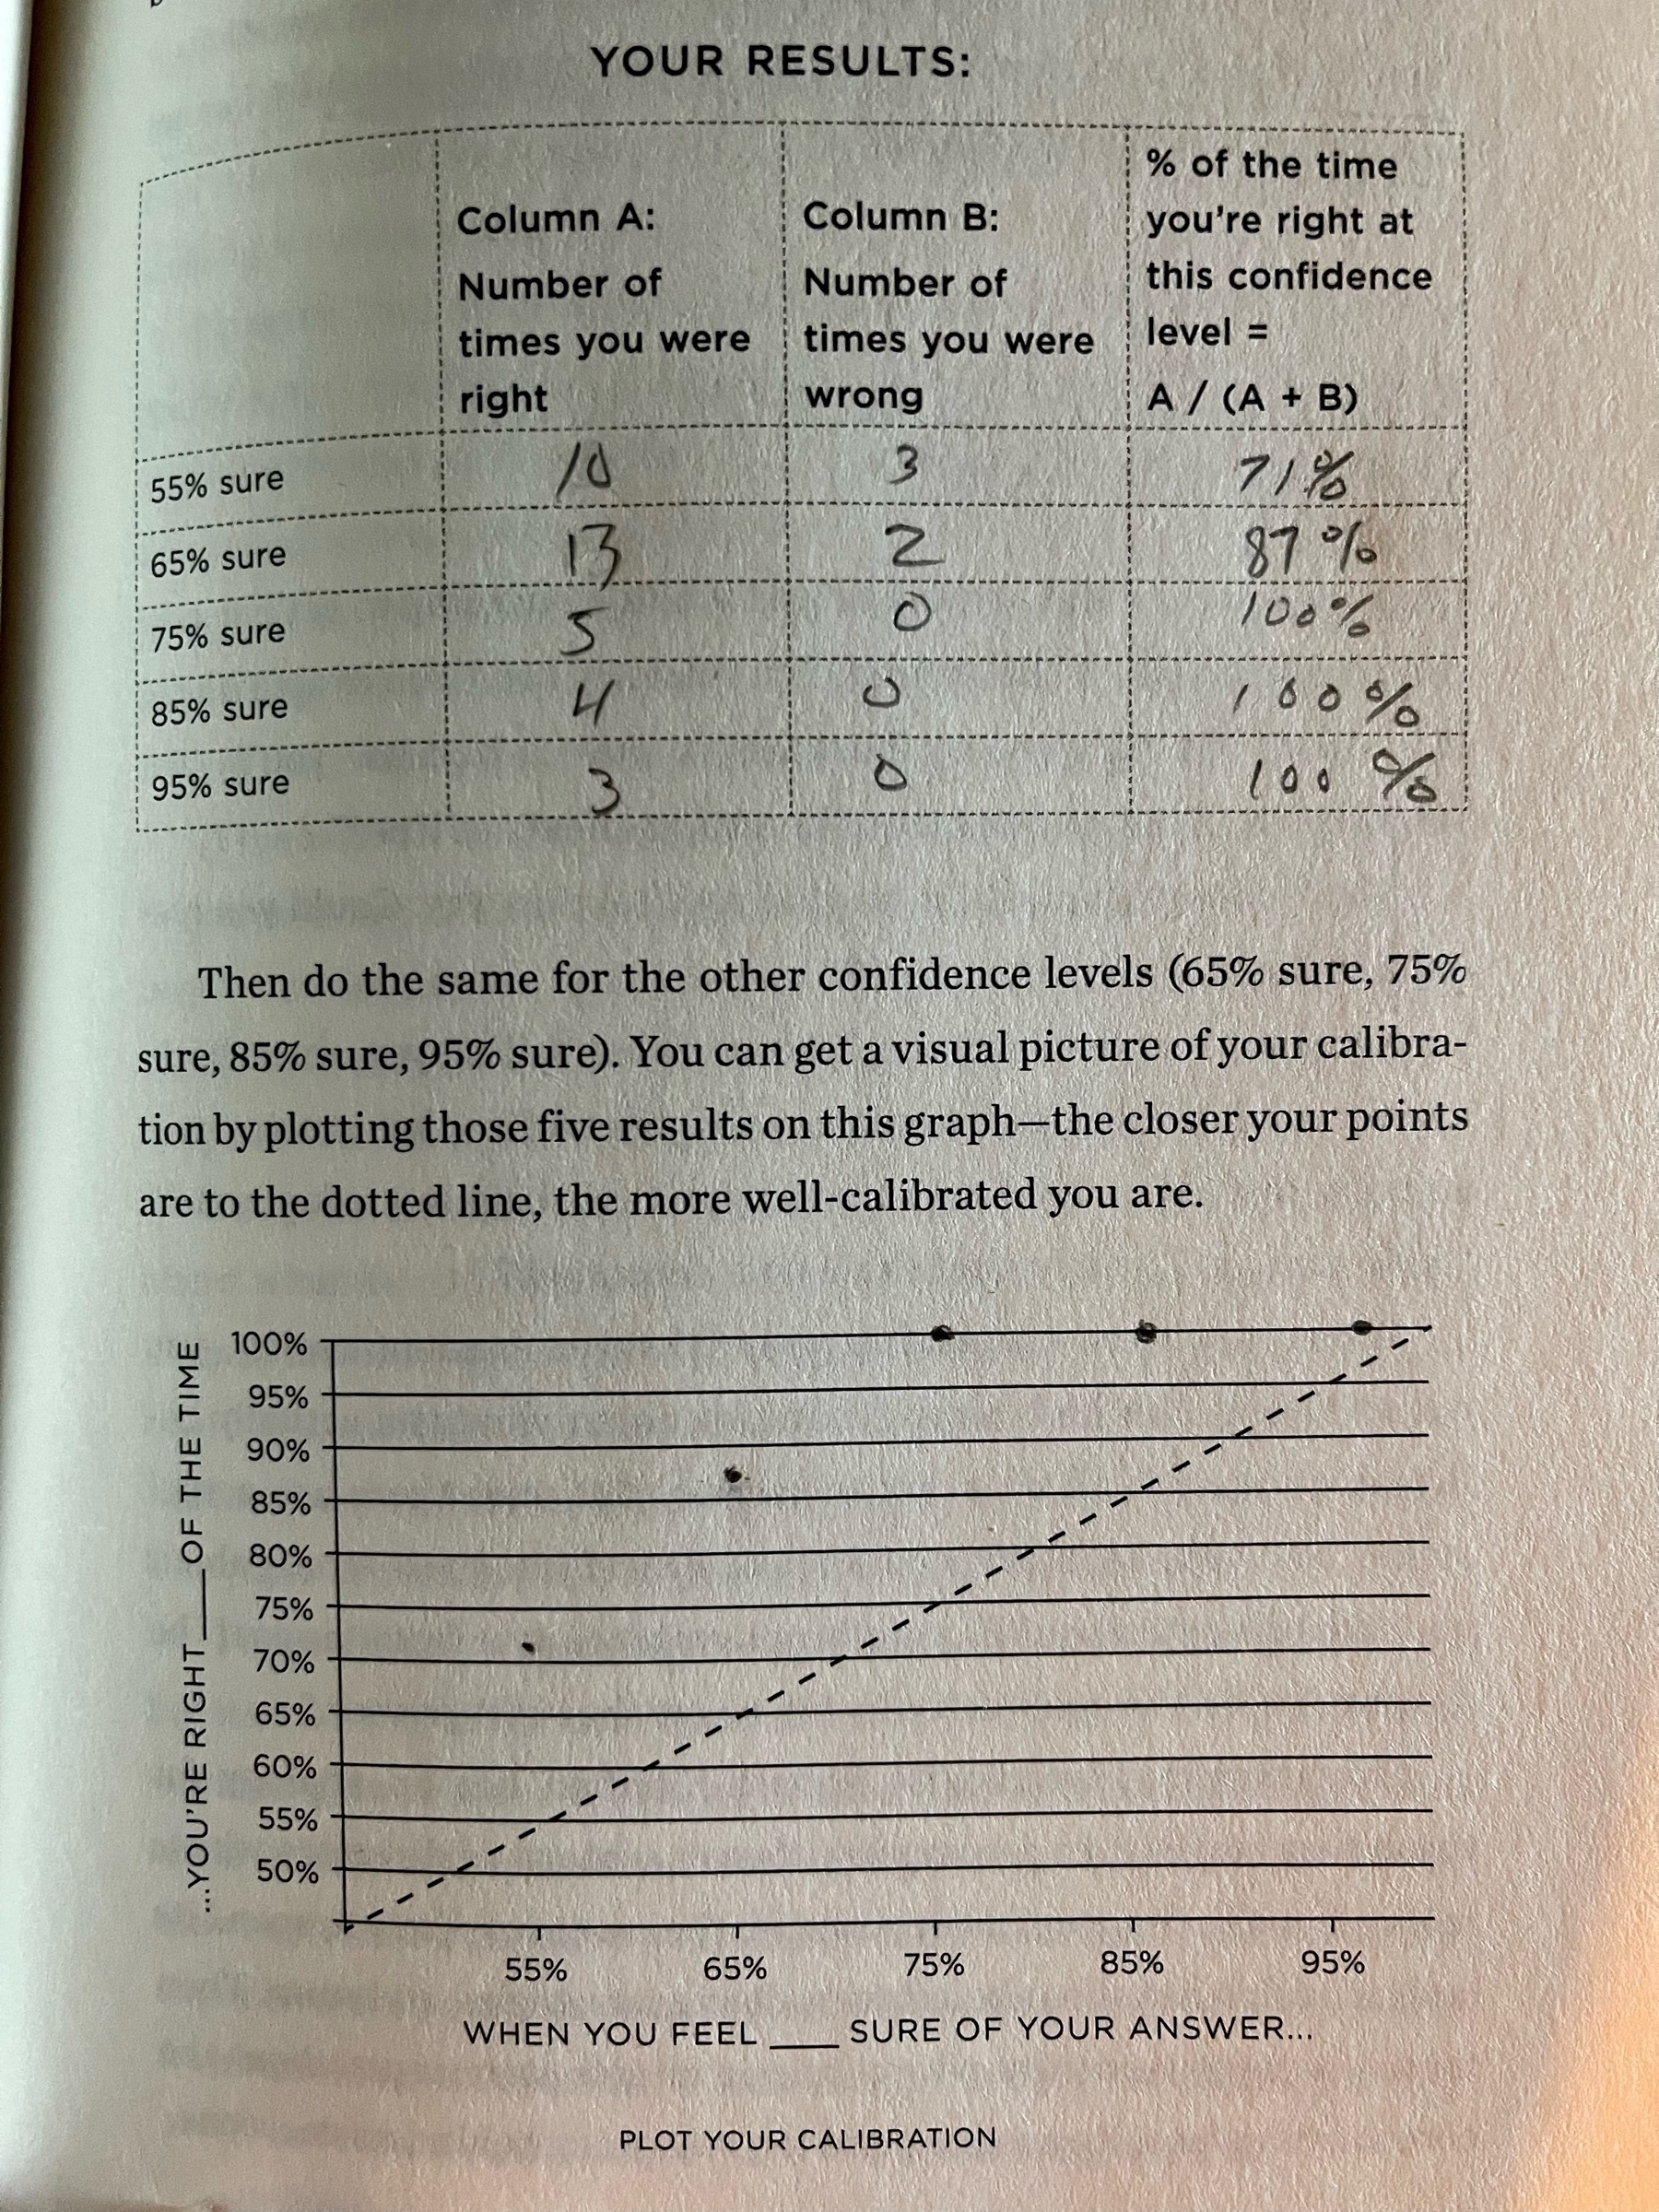 YOUR RESULTS:
% of the time
Column A: Column B: you're right at
Number of Number of this confidence
times you were times you were level =
right wrong A / (A + B)
55% sure 10 3 71%
65% sure 13 2 87%
75% sure 5 0 100%
85% sure 4 0 100%
95% sure 3 0 100%
Then do the same for the other confidence levels (65% sure, 75%
sure, 85% sure, 95% sure). You can get a visual picture of your calibra-
tion by plotting those five results on this graph—the closer your points
are to the dotted line, the more well-calibrated you are.
...YOU'RE RIGHT ___ OF THE TIME
100%
95%
90%
85%
80%
75%
70%
65%
60%
55%
50%
55% 65% 75% 85% 95%
WHEN YOU FEEL ___ SURE OF YOUR ANSWER...
PLOT YOUR CALIBRATION